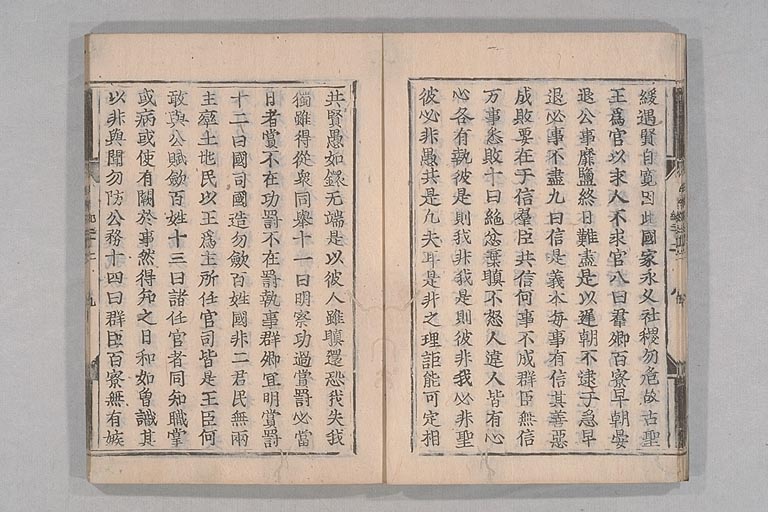 緩遇賢自寛因此國家永久社稷勿危故古聖
王爲官以求人不求官八曰羣卿百寮早朝晏
退公事靡鹽終日難盡是以遲朝不逮于急早
退必事不盡九曰信是義本毎事有信其善惡
成敗要在于信羣臣共信何事不成群臣無信
万事悉敗十曰絶忿棄瞋不怒人違人皆有心
心各有執彼是則我非我是則彼非我必非聖
彼必非愚共是凡夫耳是非之理詎能可定相
共賢愚如鐶无端是以彼人雖瞋還恐我失我
獨雖得從衆同舉十一曰明察功過賞罰必當
日者賞不在功罰不在罰執事群卿宜明賞罰
十二曰國司國造勿歛百姓國非二君民無兩
主率土地民以王爲主所任官司皆是王臣何
敢與公賦歛百姓十三曰諸任官者同知職掌
或病或使有闕於事然得知之日和如曾識其
以非與聞勿防公務十四曰群臣百寮無有嫉